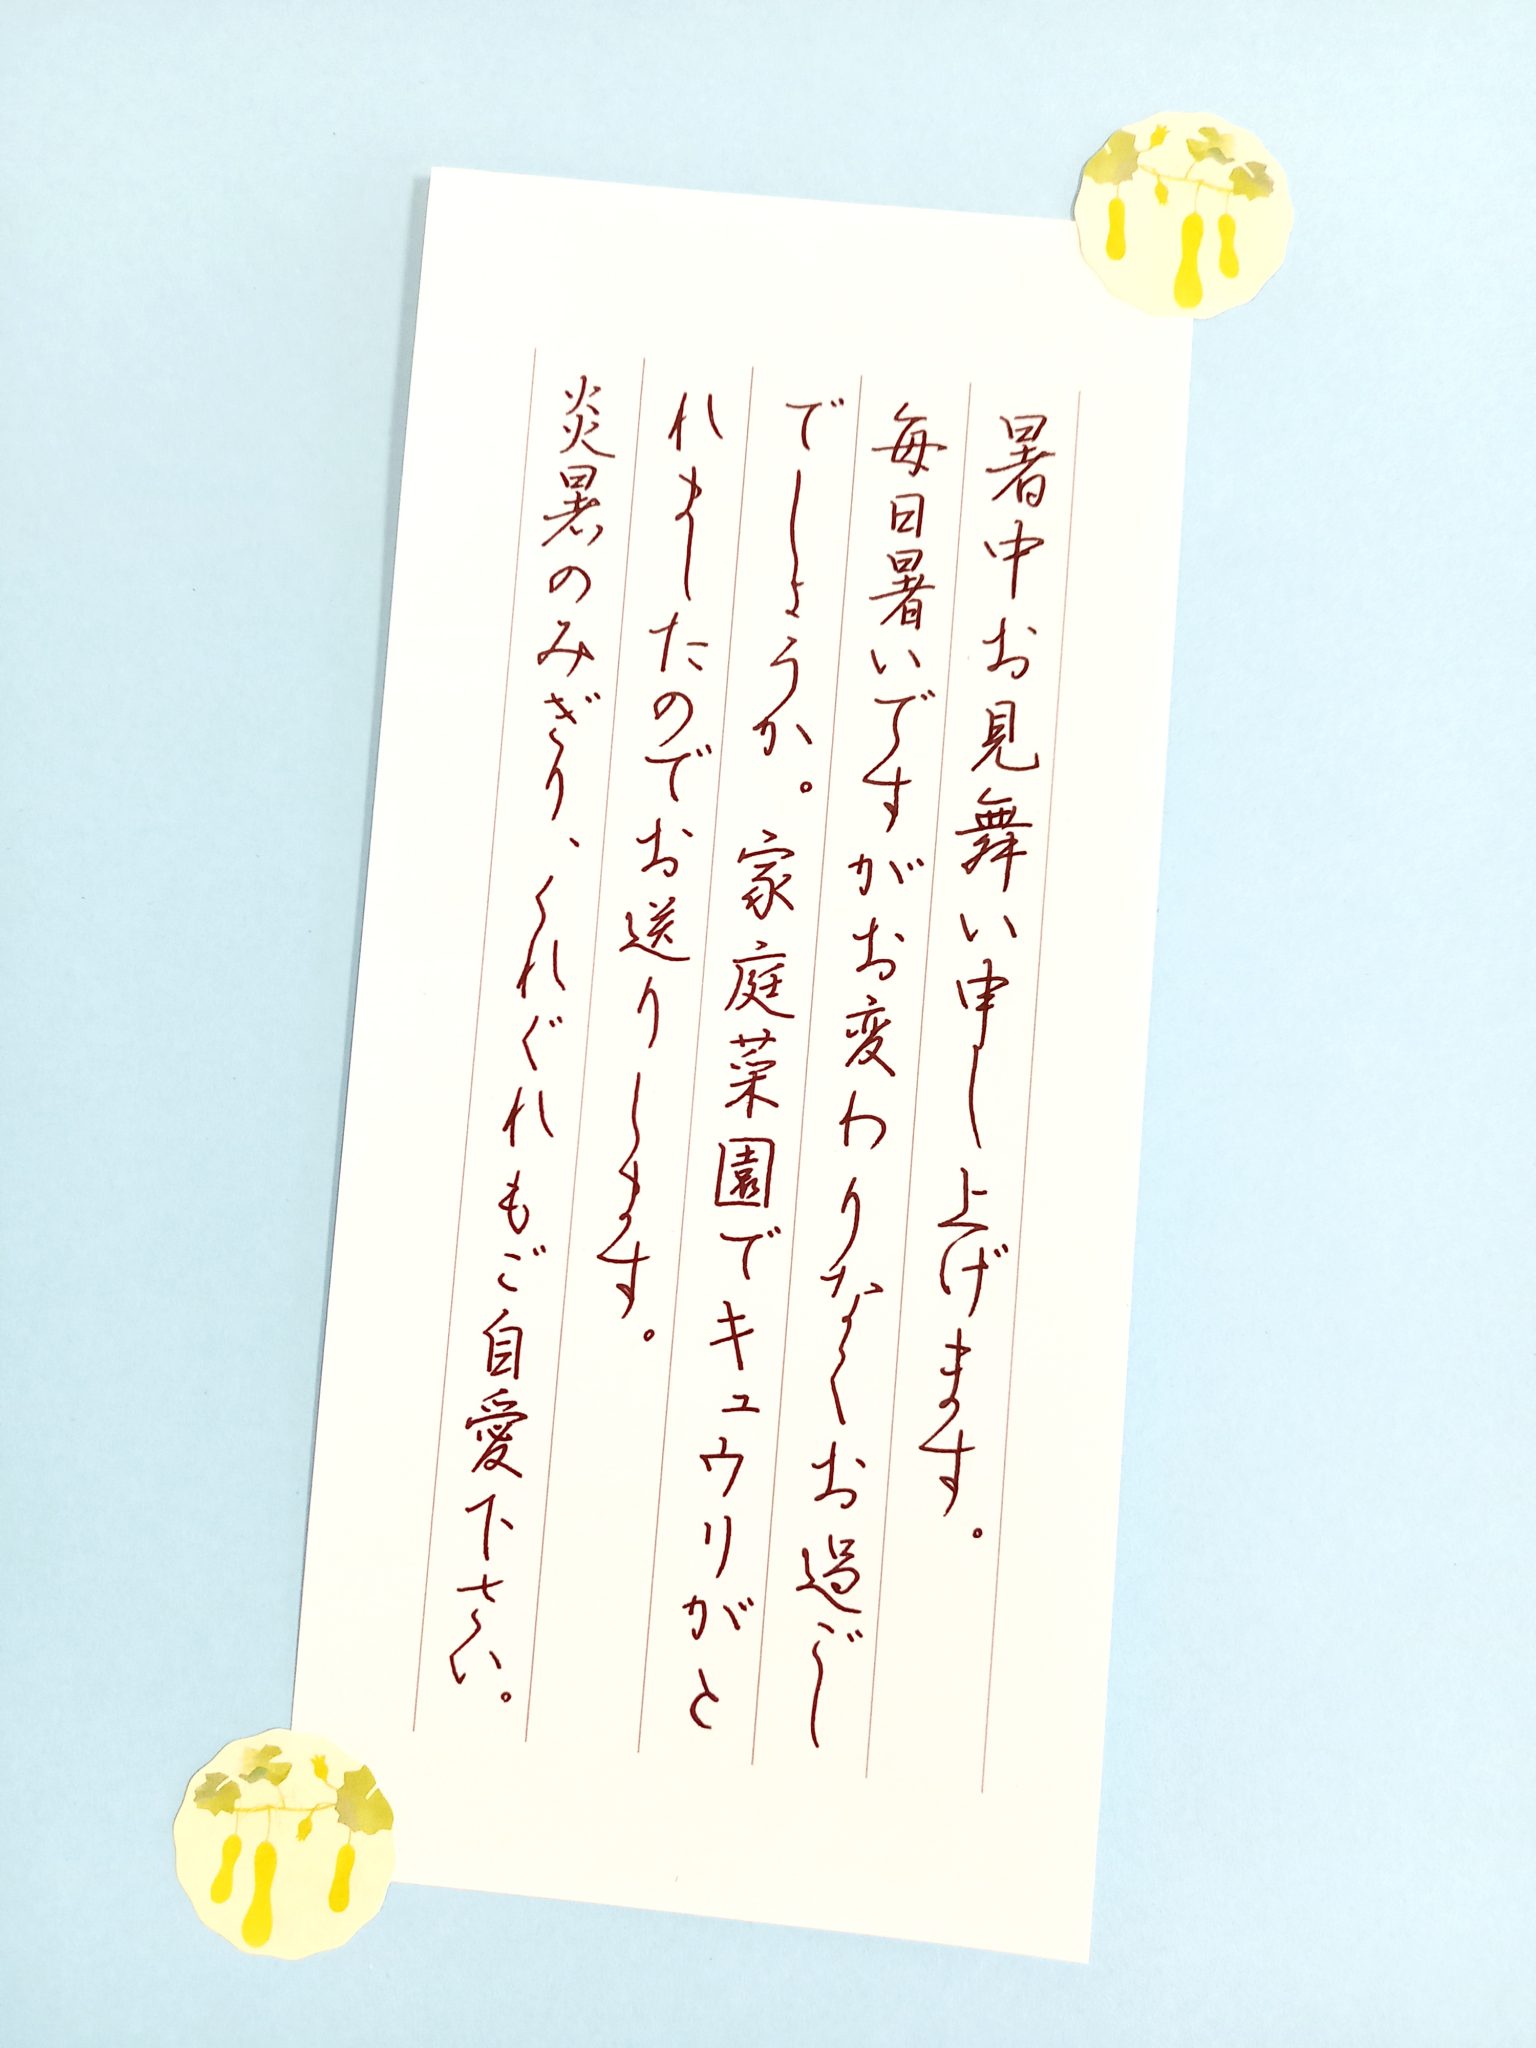 暑中お見舞い申し上げます。
毎日暑いですがお変わりなくお過ごし
でしょうか。家庭菜園でキュウリがと
れましたのでお送りします。
炎暑のみぎり、くれぐれもご自愛下さい。